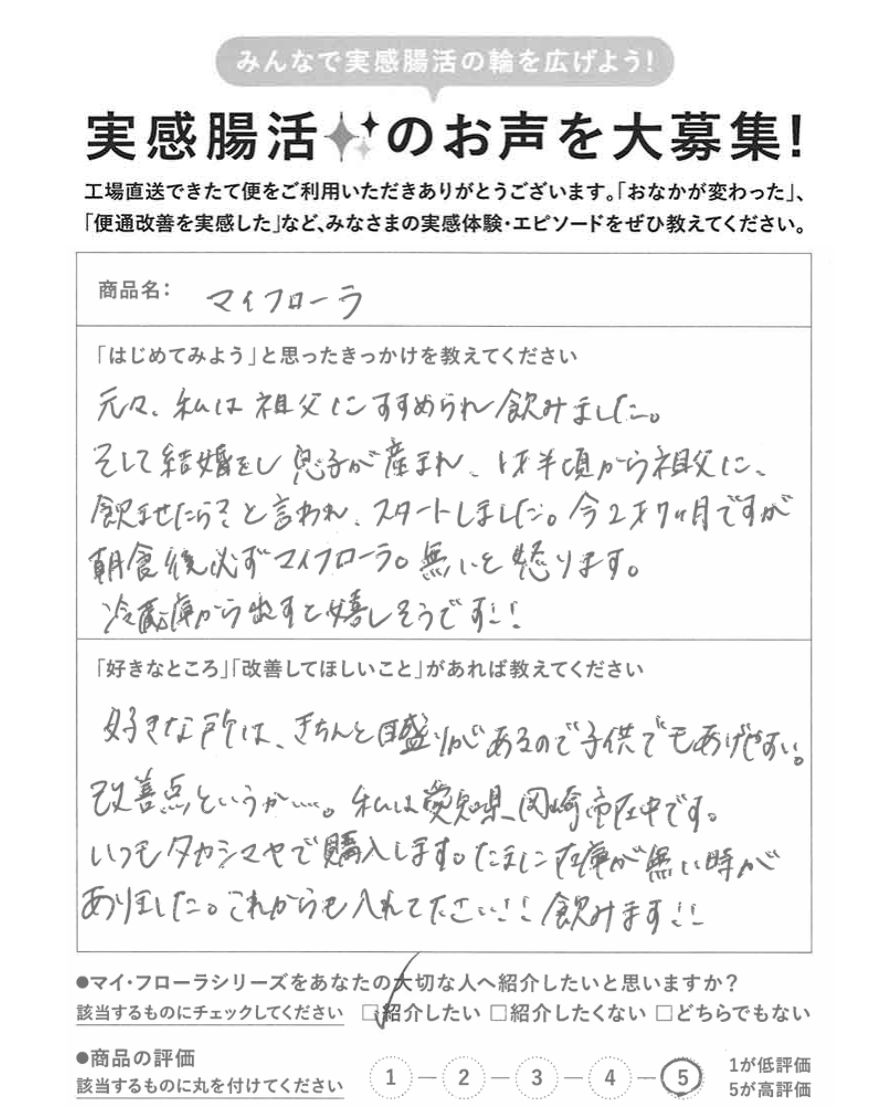 みんなで実感腸活の輪を広げよう!
実感腸活のお声を大募集!
工場直送できたて便をご利用いただきありがとうございます。「おなかが変わった」、
「便通改善を実感した」など、みなさまの実感体験・エピソードをぜひ教えてください。
商品名: マイフローラ
「はじめてみよう」と思ったきっかけを教えてください
元々、私は祖父にすすめられ飲みました。
そして結婚をし息子が産まれ、1才半頃から祖父に、
飲ませたら?と言われ、スタートしました。今2才7ヶ月ですが
朝食後必ずマイフローラ。無いと怒ります。
冷蔵庫から出すと嬉しそうです!!
「好きなところ」「改善してほしいこと」があれば教えてください
好きな所は、きちんと目盛りがあるので子供でもあげやすい。
改善点というか…。私は愛知県岡崎市在中です。
いつもタカシマヤで購入します。たまに在庫が無い時が
ありました。これからも入れてください!!飲みます!!
●マイ・フローラシリーズをあなたの大切な人へ紹介したいと思いますか?
該当するものにチェックしてください □紹介したい □紹介したくない □どちらでもない
●商品の評価
該当するものに丸を付けてください 1 — 2 — 3 — 4 — 5 1が低評価
5が高評価